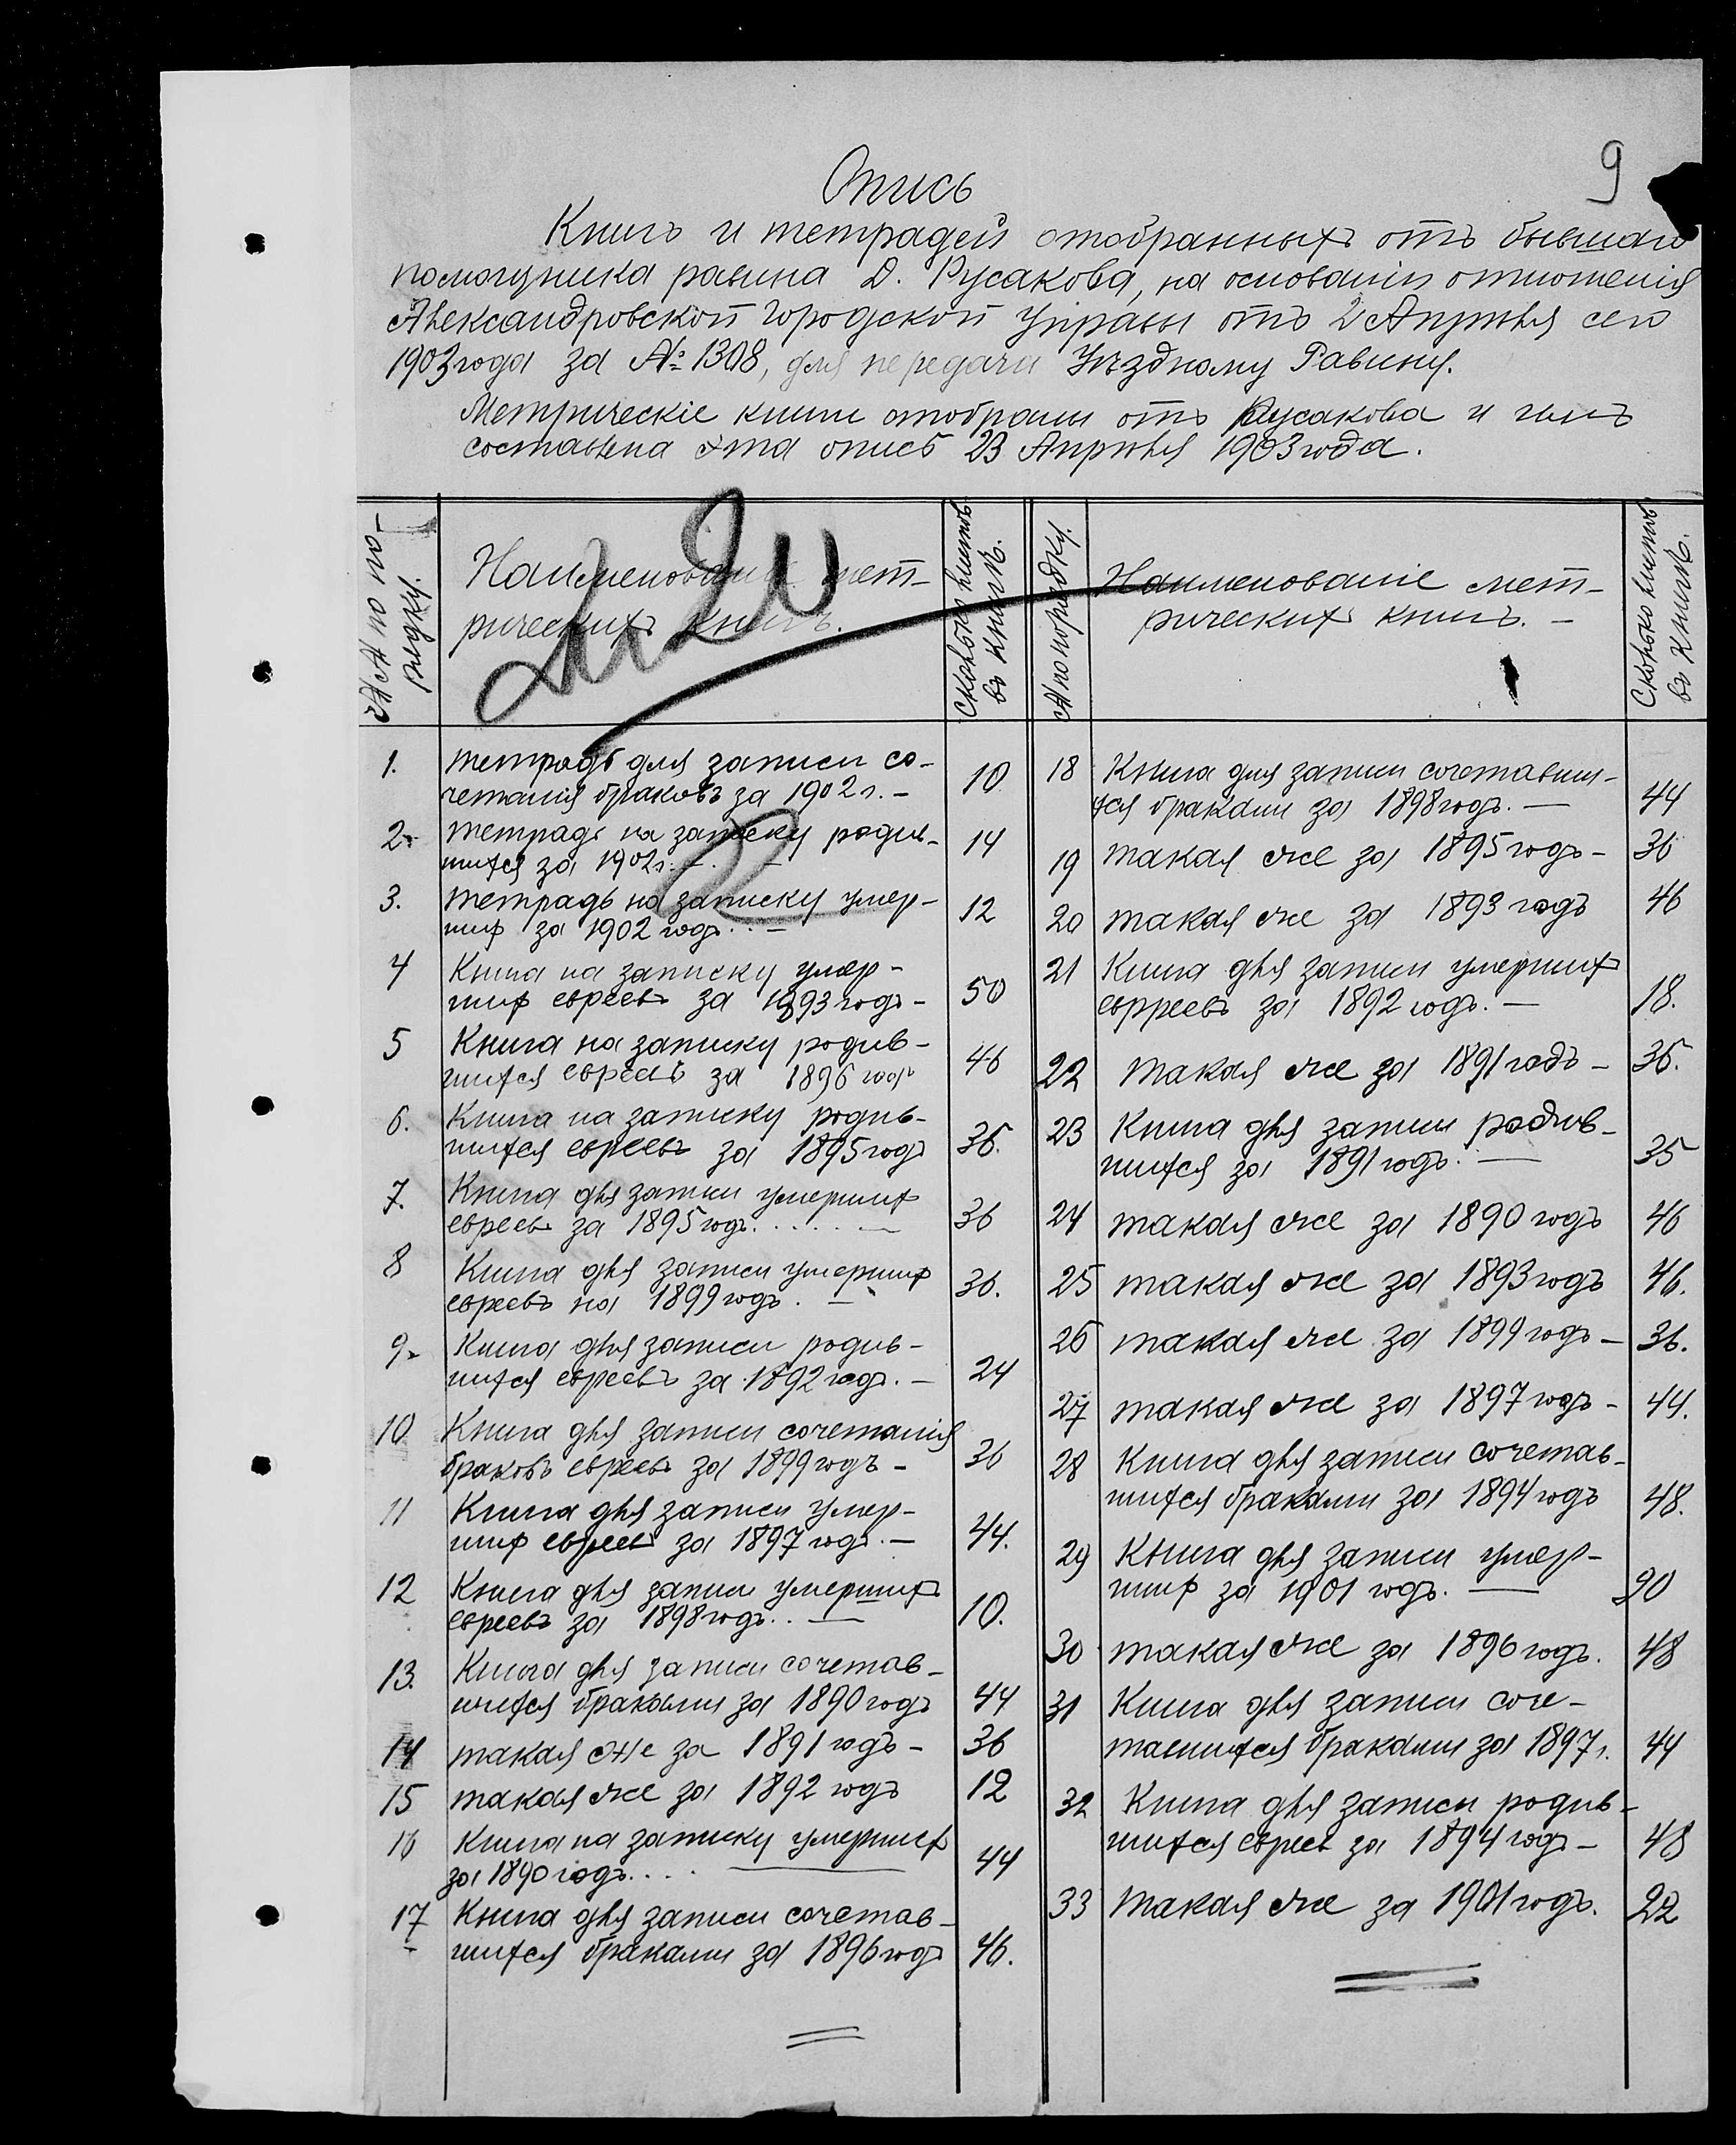 9
Опись
Книгъ и тетрадей отобранныхъ отъ бывшаго
помощника равина Д. Русакова, на основаніи отношенія
Александровской Городской Управы отъ 2 Апрѣля сего
1903 года за № 1308, для передачи Уѣздному Равину.
Метрическіе книги отобраны отъ Русакова и
составлена эта опись 23 Апрѣля 1903 года.
№№ по по-
рядку.
Наименованіе мет-
рическихъ книгъ.
Сколько листовъ
въ книгѣ.
№ по порядку.
Наименованіе мет-
рическихъ книгъ. –
Сколько листовъ
въ книгѣ.
1. тетрадь для записи со-
четанія браковъ за 1902 г. – 10
2. тетрадь на записку родив-
шихся за 1902 г. – 14
3. тетрадь на записку умер-
шихъ за 1902 годъ. – 12
4 Книга на записку умер-
шихъ евреевъ за 1893 годъ – 50
5 Книга на записку родив-
шихся евреевъ за 1896 годъ 46
6. Книга на записку родив-
шихся евреевъ за 1895 годъ 36.
7. Книга для записи умершихъ
евреевъ за 1895 годъ. . . . . – 36
8 Книга для записи умершихъ
евреевъ на 1899 годъ. – 36.
9. Книга для записи родив-
шихся евреевъ за 1892 годъ. – 24
10 Книга для записи сочетанія
браковъ евреевъ за 1899 годъ – 36
11 Книга для записи умер-
шихъ евреевъ за 1897 годъ. – 44.
12 Книга для записи умершихъ
евреевъ за 1898 годъ. . — 10.
13. Книга для записи сочетав-
шихся браками за 1890 годъ 44
14 такая же за 1891 годъ – 36
15 такая же за 1892 годъ 12
16 Книга на записку умершихъ
за 1890 годъ. . . . — 44
17 Книга для записи сочетав-
шихся браками за 1896 годъ 46.
18 Книга для записи сочетавши-
хся браками за 1898 годъ. — 44
19 такая же за 1895 годъ – 36
20 такая же за 1893 годъ 46
21 Книга для записи умершихъ
еврреевъ за 1892 годъ. — 18.
22 такая же за 1891 годъ – 36.
23 Книга для записи родив-
шихся за 1891 годъ. — 35
24 такая же за 1890 годъ 46
25 такая же за 1893 годъ 46.
26 такая же за 1899 годъ – 36.
27 такая же за 1897 годъ – 44.
28 Книга для записи сочетав-
шихся браками за 1894 годъ 48.
29 Книга для записи умер-
шихъ за 1901 годъ. — 20
30 такая же за 1896 годъ. 48
31 Книга для записи соче-
тавшихся браками за 1897 г. 44
32 Книга для записи родив-
шихся евреев за 1894 годъ – 48
33 Такая же за 1901 годъ. 22